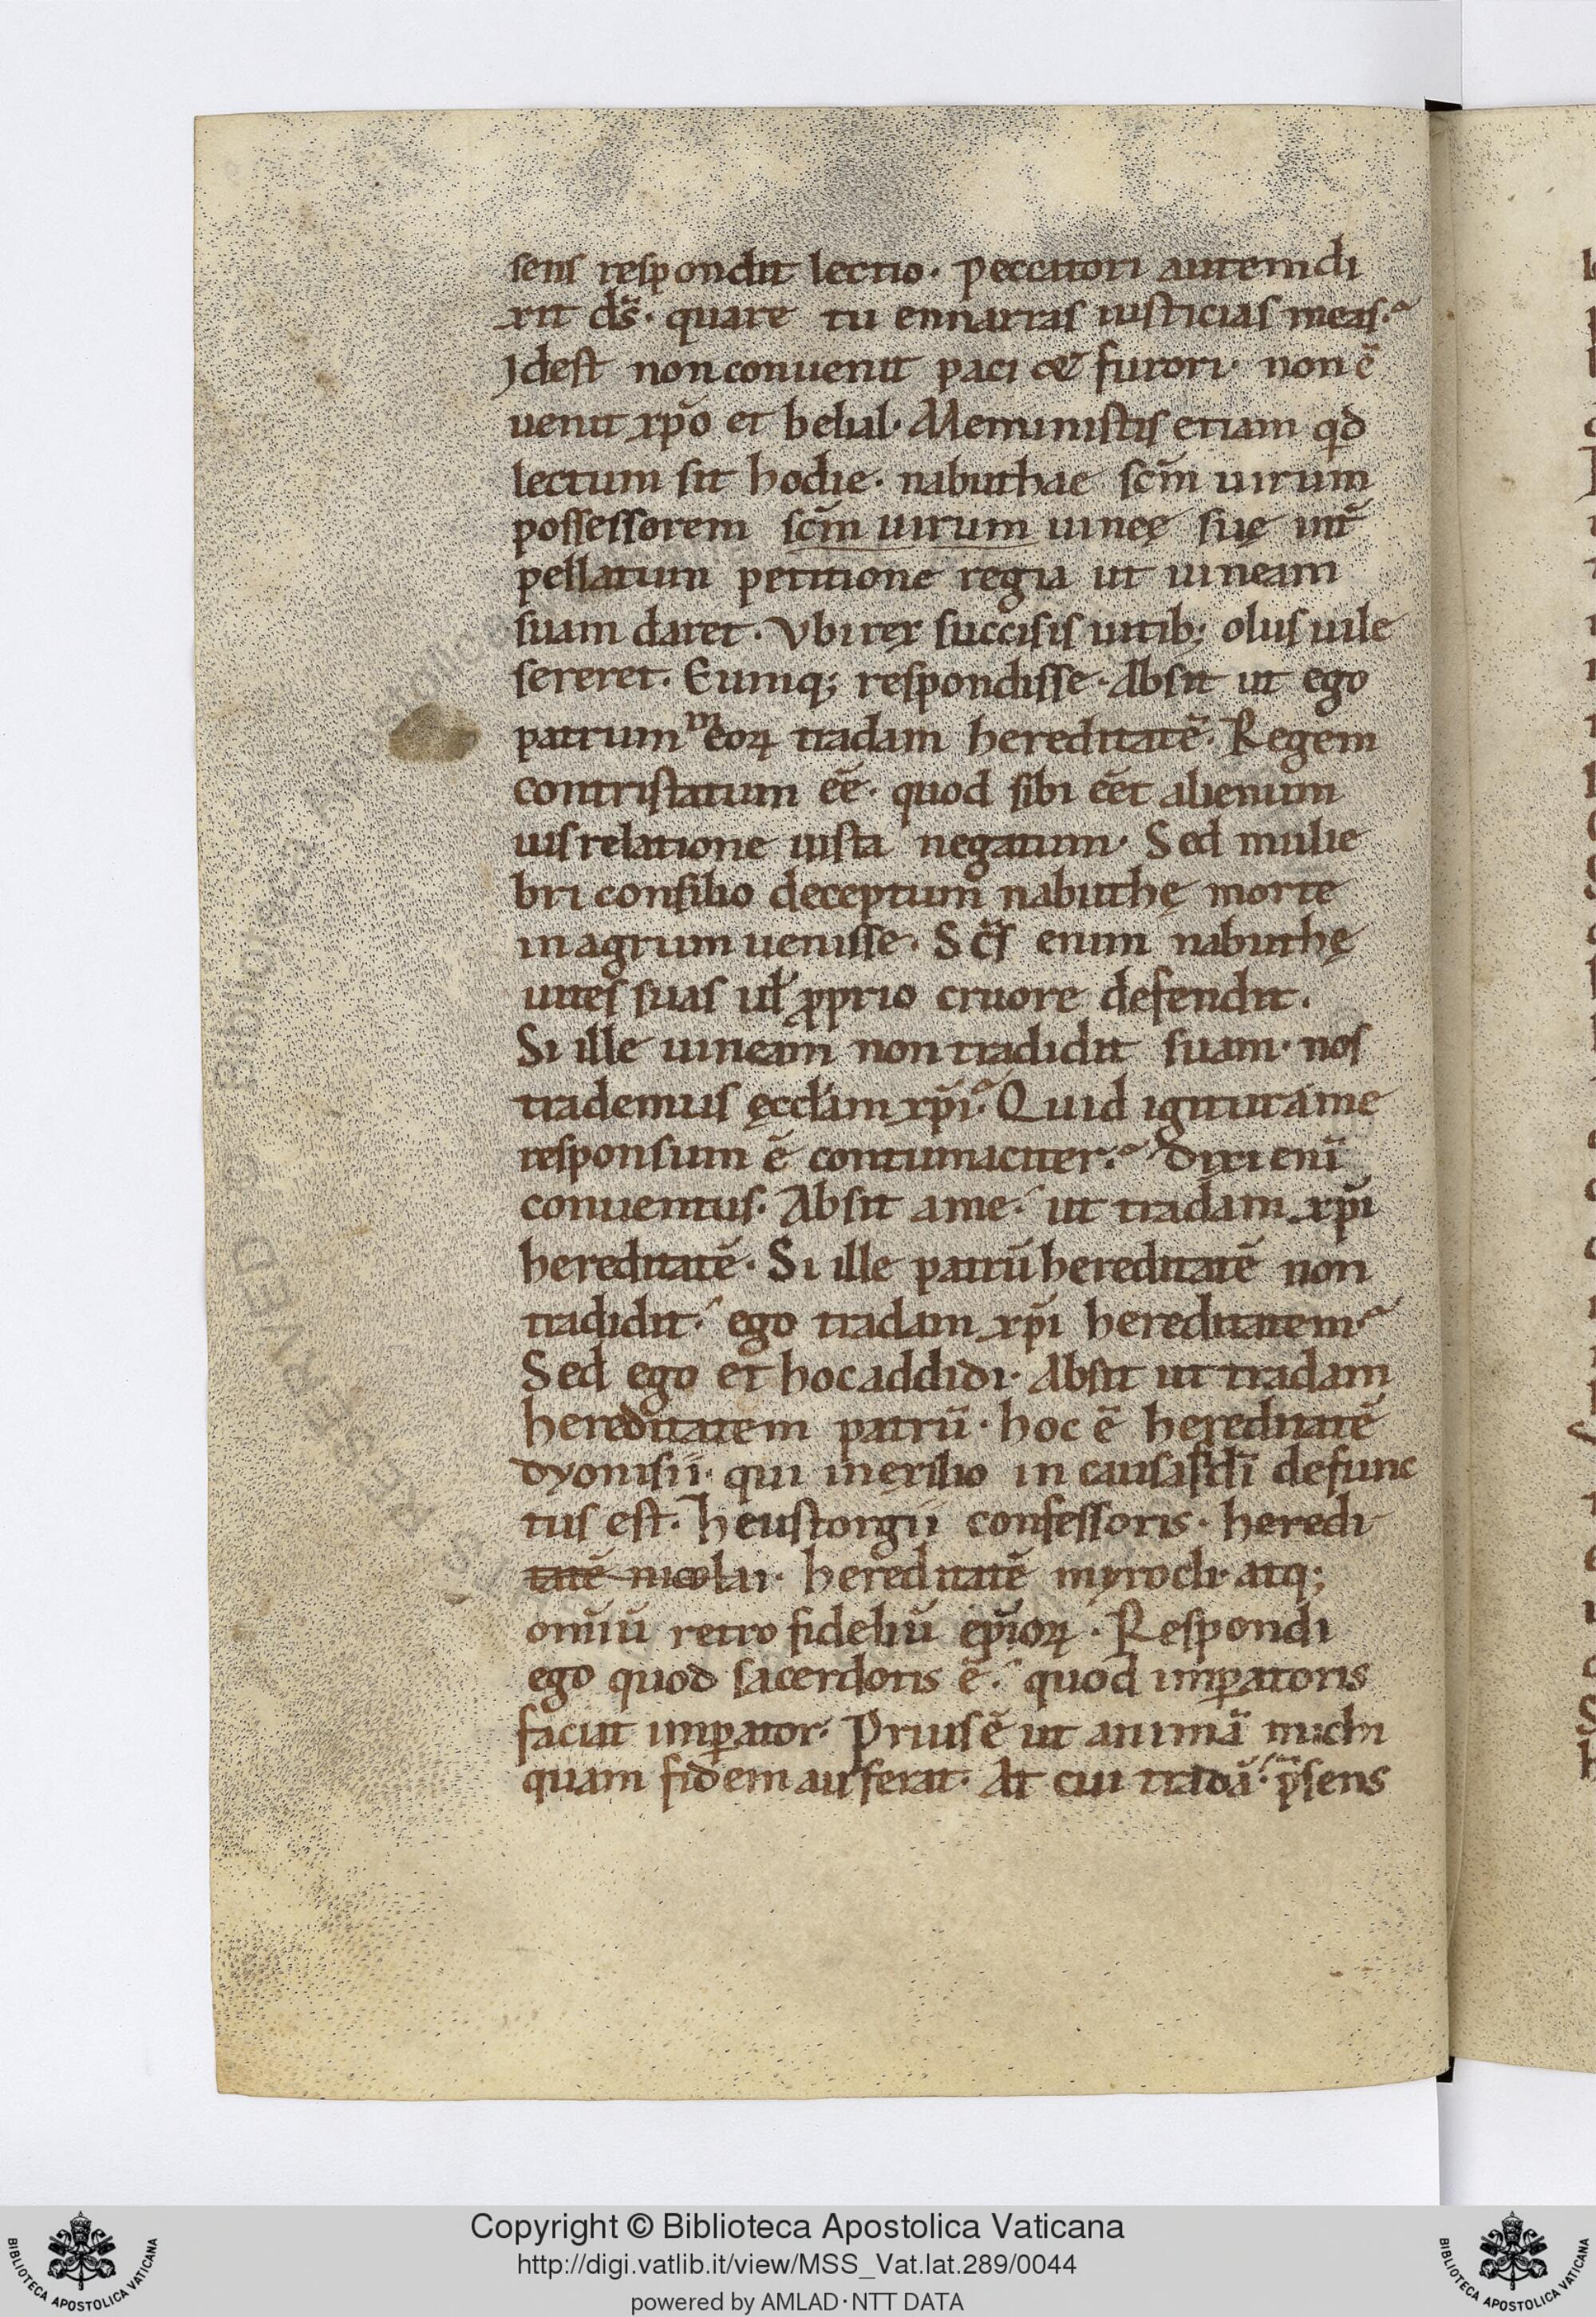 sens respondit lectio. Peccatori autem di
xit ds̄. quare tu ennarras iusticias meas.
Idest non conuenit paci & furori. non ē
uenit xp̄o et belial. Meministis etiam qd̄
lectum sit hodie. nabuthae sc̄m uirum
possessorem sc̄m uirum uineę suę int̄
pellatum petitione regia ut uineam
suam daret. Vbi rex succisis uitib; olus uile
sereret. Eumq; respondisse. Absit ut ego
patrum meoꝝ tradam hereditatē. Regem
contristatum eē. quod sibi eēt alienum
uis relatione iusta negatum. Sed mulie
bri consilio deceptum nabuthę morte
in agrum uenisse. Sc̄s enim nabuthę
uites suas ul̄ ꝓprio cruore defendit.
Si ille uineam non tradidit suam. nos
trademus ęccl̄am xp̄i. Quid igitur a me
responsum ē contumaciter. Dixi eni̅
conuentus. Absit a me. ut tradam xp̄i
hereditatē. Si ille patrū hereditatē non
tradidit. ego tradam xp̄i hereditatem
Sed ego et hoc addidi. Absit ut tradam
hereditatem patrū. hoc ē hereditatē
dyonisii. qui in exilio in causa fid̄i defunc
tus est. heustorgii confessoris. heredi
tatē nicolai. hereditatē myrocli. atq;
omīū retro fideliū ep̄ioꝝ. Respondi
ego quod sacerdotis ē. quod imꝑatoris
faciat imꝑator. Prius ē ut animā michi
quam fidem auferat. At cui tradā. p̄sens
Copyright © Biblioteca Apostolica Vaticana
http://digi.vatlib.it/view/MSS_Vat.lat.289/0044
powered by AMLAD·NTT DATA
BIBLIOTECA APOSTOLICA VATICANA
BIBLIOTECA APOSTOLICA VATICANA